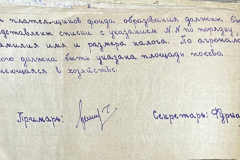 плательщиков фонда образования должны бы
дставлены списки с указанием N.N по порядку
амилия имя и размера налога. По агроналo
ого должна быть указана площадь посева
меющаяся в хозяйстве.
Примарь: Секретарь: